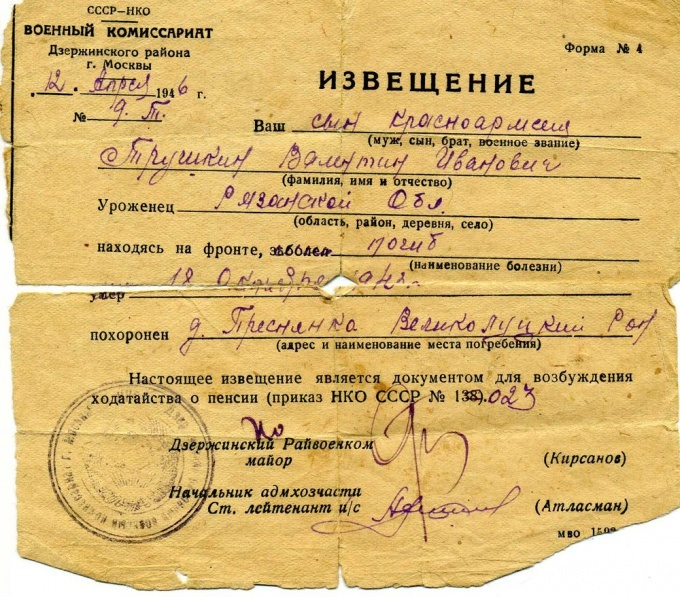 СССР—НКО
ВОЕННЫЙ КОМИССАРИАТ
Дзержинского района
г. Москвы
Форма № 4
12 Апреля 1946 г.
ИЗВЕЩЕНИЕ
№ 9. Т.
Ваш сын красноармеец
(муж, сын, брат, военное звание)
Трушкин Валентин Иванович
(фамилия, имя и отчество)
Уроженец Рязанской Обл
(область, район, деревня, село)
находясь на фронте, заболел погиб
(наименование болезни)
умер 18 Октября 1942 г.
похоронен д. Преснянка Великолуцкий Рон
(адрес и наименование места погребения)
Настоящее извещение является документом для возбуждения
ходатайства о пенсии (приказ НКО СССР № 138). 023
Дзержинский Райвоенком
майор
(Кирсанов)
Начальник адмхозчасти
Ст. лейтенант и/с
(Атласман)
МВО